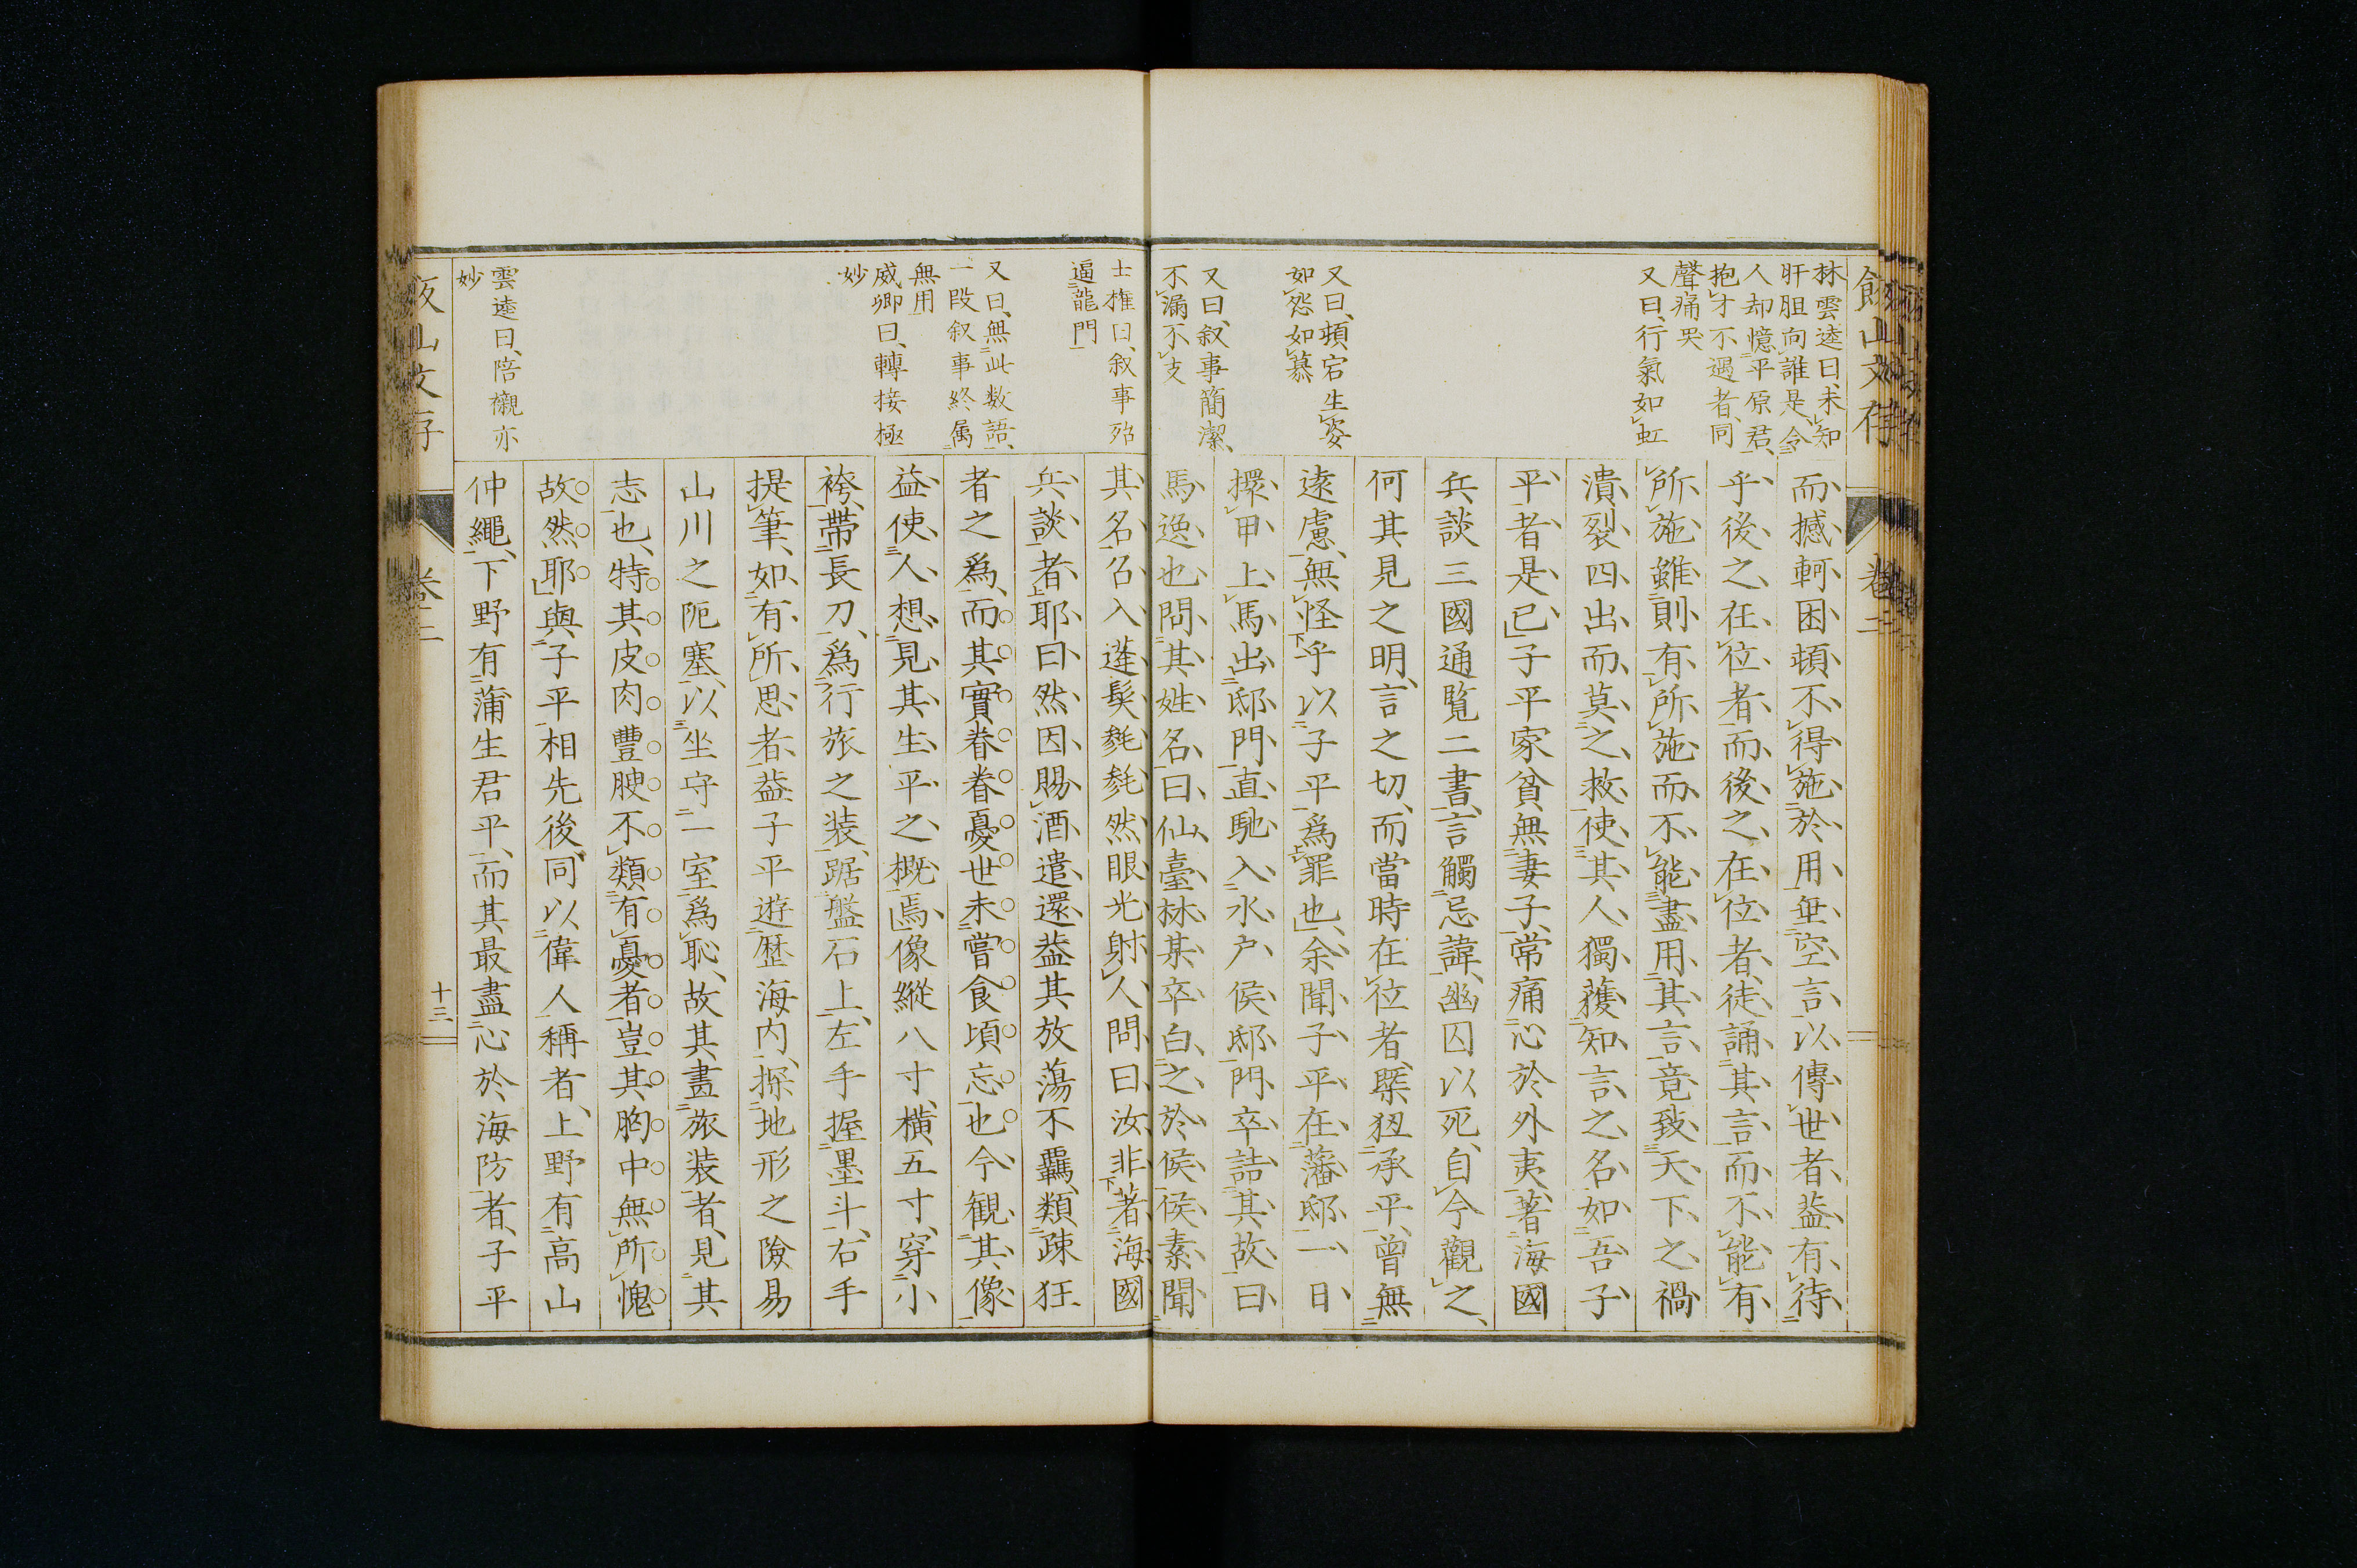 飯山文存
卷二
林雲逵曰、未知
肝胆向誰是、令
人却憶平原君、
抱才不遇者、同
聲痛哭
又曰、行氣如虹
又曰、頓宕生姿
如怨如慕
又曰、叙事簡潔、
不漏不支
而撼軻困頓不得施於用、垂空言以傳世者、葢有待
乎後之在位者、而後之在位者、徒誦其言而不能有
所施、雖則有所施、而不能盡用其言、竟致天下之禍
潰裂四出、而莫之救、使其人獨獲知言之名、如吾子
平者是已、子平家貧、無妻子、常痛心於外夷、著海國
兵談三國通覧二書、言觸忌諱、幽囚以死、自今觀之、
何其見之明、言之切、而當時在位者、槩狃承平、曾無
遠慮、無怪乎以子平爲罪也、余聞子平在藩邸、一日
擐甲上馬、出邸門、直馳入水户侯邸、門卒詰其故、曰
馬逸也、問其姓名、曰仙臺林某、卒白之於侯、侯素聞
士權曰、叙事殆
逼龍門
又曰、無此数語、
一段叙事終属
無用
威卿曰、轉接極
妙
雲逵曰、陪襯亦
妙
其名、召入、蓬髮毿毿然、眼光射人、問曰、汝非著海國
兵談者耶、曰然、因賜酒遣還、葢其放蕩不羈、類疎狂
者之爲、而其實眷眷憂世、未嘗食頃忘也、今觀其像、
益使人想見其生平之概焉、像縱八寸、橫五寸、穿小
袴、帶長刀、爲行旅之装、踞盤石上、左手握墨斗、右手
提筆、如有所思者、葢子平遊歴海内、探地形之險易
山川之阨塞、以坐守一室爲恥、故其畫旅装者、見其
志也、特其皮肉豐腴、不類有憂者、豈其胸中無所愧
故然耶、與子平相先後、同以偉人稱者、上野有高山
仲繩、下野有蒲生君平、而其最盡心於海防者、子平
飯山文存
卷二
十三